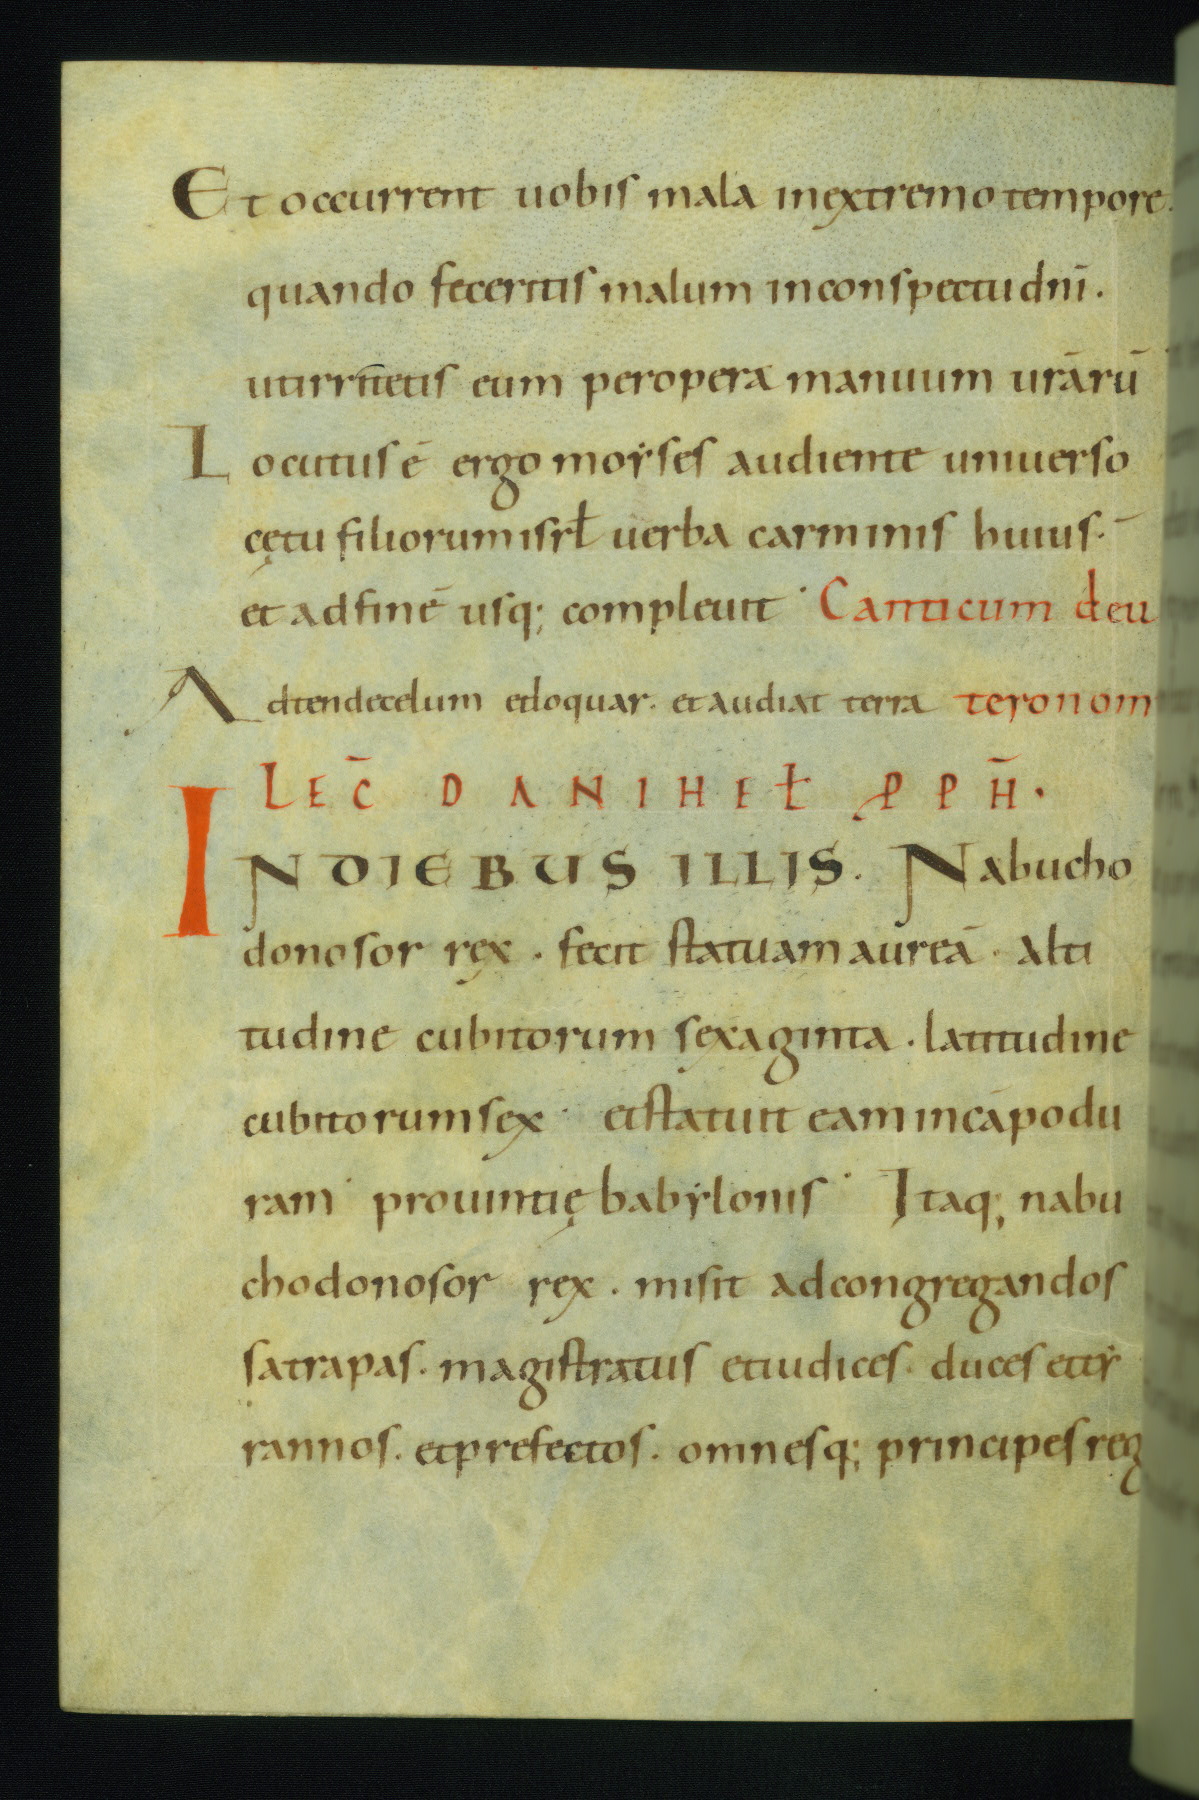 Et occurrent uobis mala inextremo tempore.
quando feceritis malum inconspectu dnī.
utirritetis eum peropera manuum urārū
Locutus ē ergo moẏses audiente uniuerso
cętu filiorum isrł uerba carminis huius.
et adfinē usq; compleuit Canticum deu
Adtendecelum etloquar. et audiat terra teronom
LEC̄ DANIHEŁ PPH̄.
INDIEBUS ILLIS. Nabucho
donosor rex. fecit statuam aureā. alti
tudine cubitorum sexaginta. latitudine
cubitorum sex. et statuit eam incāpo du
ram prouintię babẏlonis. Itaq; nabu
chodonosor rex. misit adcongregandos
satrapas. magistratus etiudices. duces ettẏ
rannos. etprefectos. omnesq; principes reg